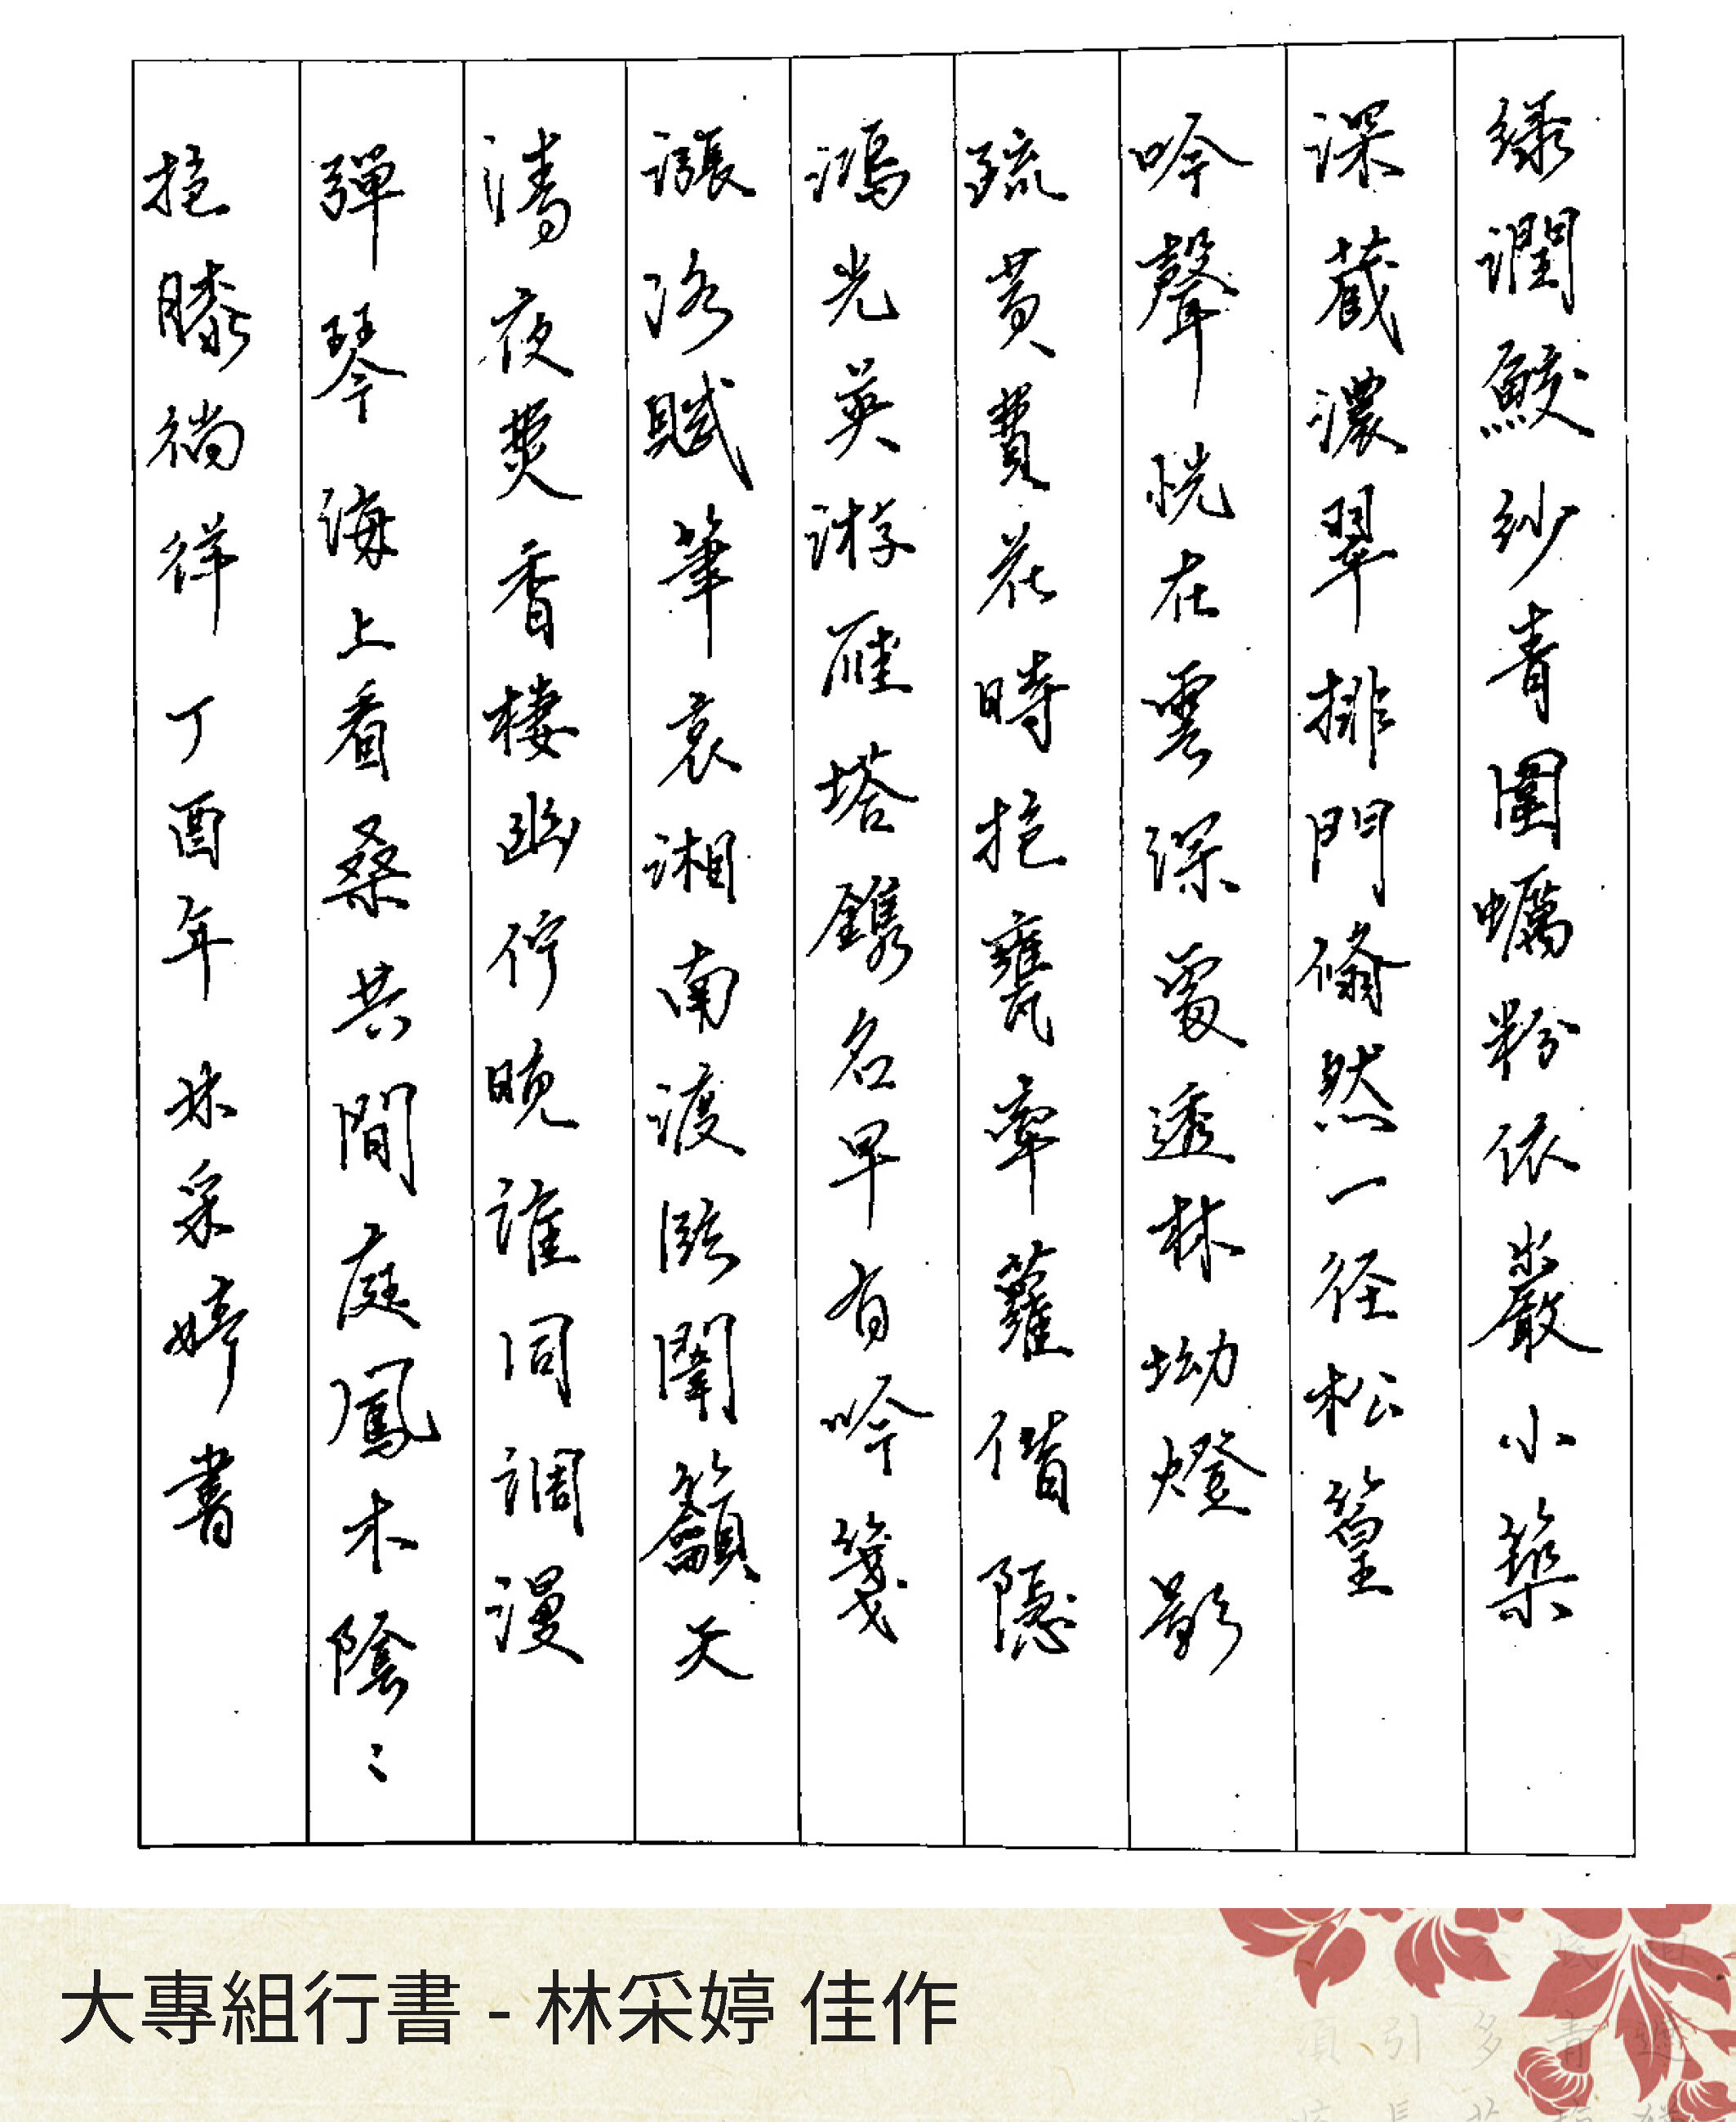 綠潤鮫紗青圍蠣粉依巖小築
深藏濃翠排門翛然一徑松篁
吟聲恍在雲深處透林坳燈影
疏黃費花時抱甕牽蘿偕隱
鴻光英游雁塔鐫名早有吟箋
漲洛賦筆哀湘南渡臨闌籲天
濤夜爇香樓幽佇晚誰同調漫
彈琴海上看桑共閒庭鳳木陰〻
抱膝徜徉 丁酉年 林采婷書
大專組行書 - 林采婷 佳作